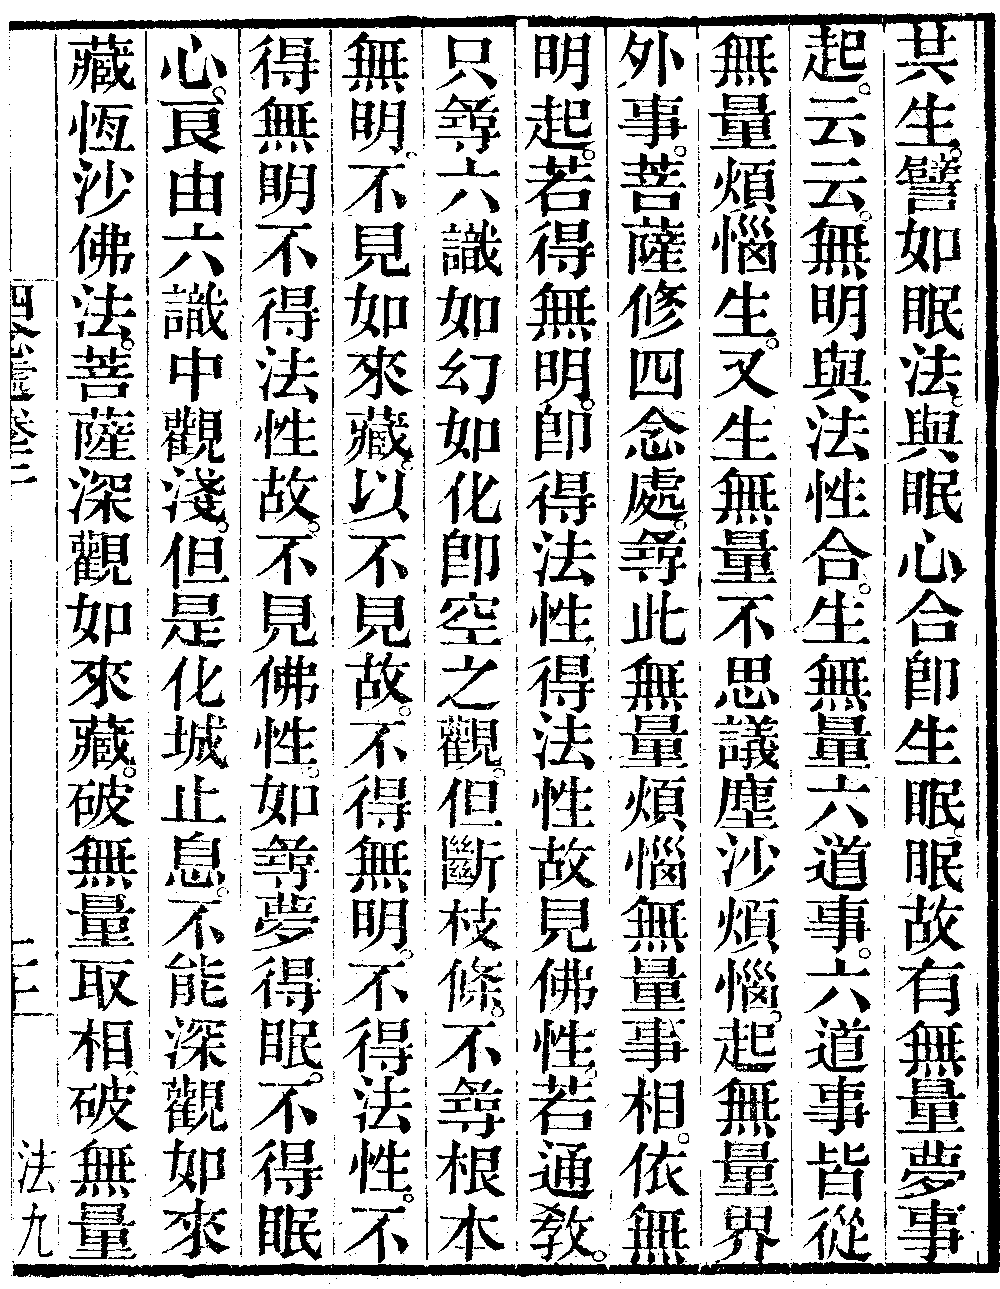 共生。譬如眠法。與眠心合卽生眠。眠故有無量夢事
起。云云。無明與法性合。生無量六道事。六道事皆從
無量煩惱生。又生無量不思議塵沙煩惱。起無量界
外事。菩薩修四念處。尋此無量煩惱無量事相。依無
明起。若得無明。卽得法性。得法性故見佛性。若通敎。
只尋六識如幻如化卽空之觀。但斷枝條。不尋根本
無明。不見如來藏。以不見故。不得無明。不得法性。不
得無明不得法性故。不見佛性。如尋夢得眠。不得眠
心。良由六識中觀淺。但是化城止息。不能深觀如來
藏恆沙佛法。菩薩深觀如來藏。破無量取相破無量
四念處卷三
二十一
法九